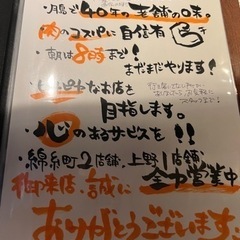 ・月島で40年の老舗の味。
肉のコスパに自信有
・朝は8時まで!
まだまだやります!
・ピュアなお店を
目指します。
心のあるサービスを!!
・綿糸町2店舗、上野1店舗
全力営業中
御来店、誠に
ありがとうございます